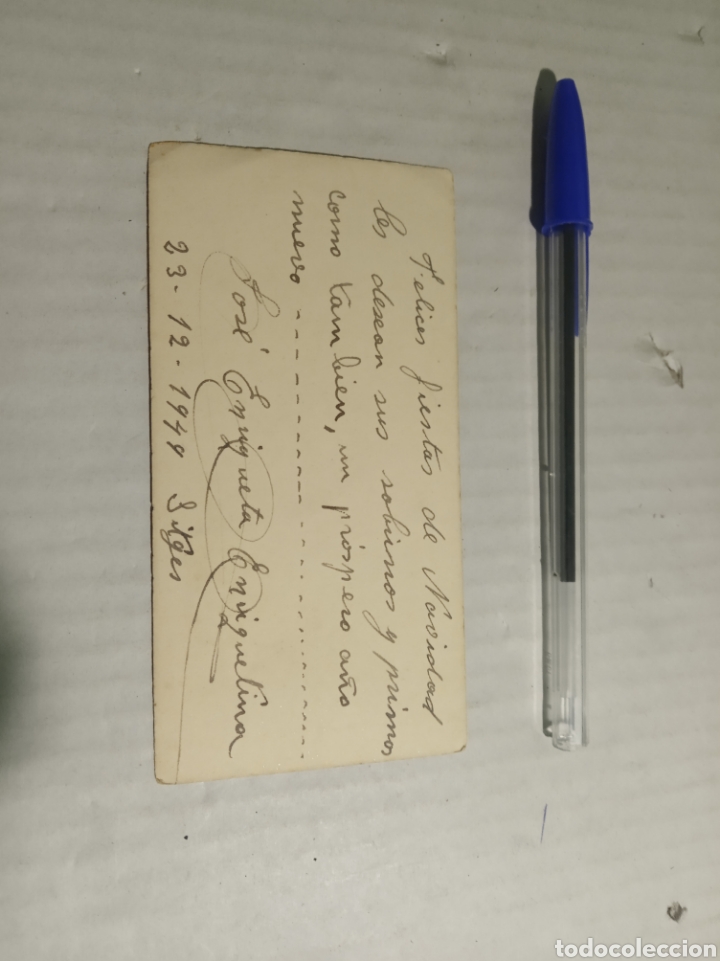 Felices fiestas de Navidad
les desean sus sobrinos y primos
como tambien, un próspero año
nuevo
José Enriqueta Enriquetina
23-12-1949 Sitges
todocoleccion